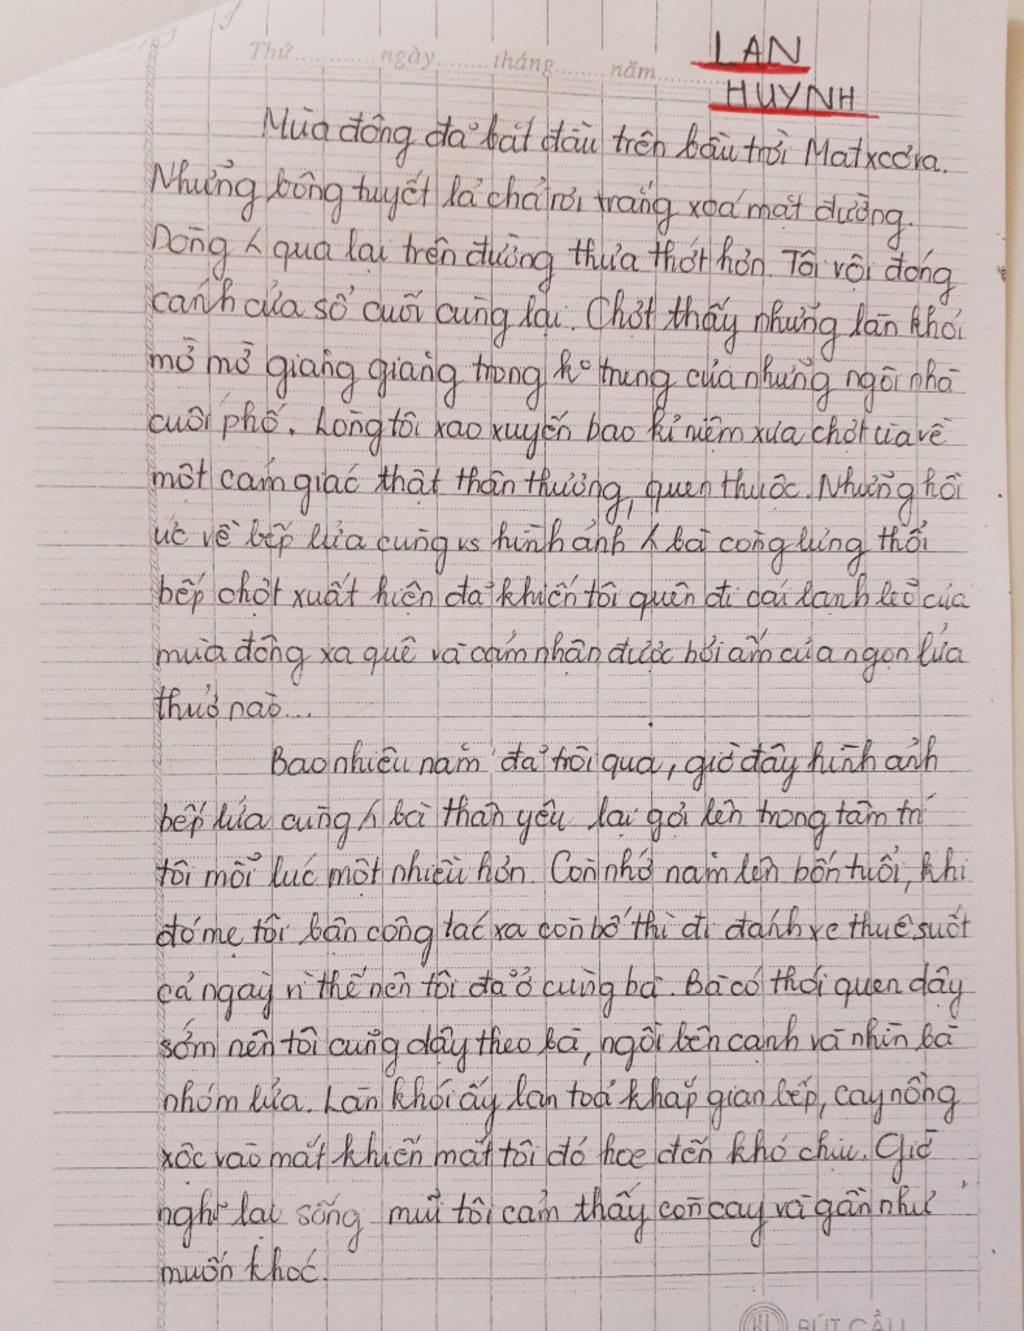 Thứ........ngày........tháng........năm........
LAN
HUYNH
Mùa đông đã bắt đầu trên bầu trời Matxcơva.
Những bông tuyết lả chả rơi trắng xoá mặt đường.
Dòng λ qua lại trên đường thưa thớt hơn. Tôi vội đóng
cánh cửa sổ cuối cùng lại. Chợt thấy những làn khói
mờ mờ giăng giăng trong ko trung của những ngôi nhà
cuối phố. Lòng tôi xao xuyến bao kỉ niệm xưa chợt ùa về
một cảm giác thật thân thương, quen thuộc. Những hồi
ức về bếp lửa cùng vs hình ảnh λ bà còng lưng thổi
bếp chợt xuất hiện đã khiến tôi quên đi cái lạnh lẽo của
mùa đông xa quê và cảm nhận được hơi ấm của ngọn lửa
thuở nào...
Bao nhiêu năm đã trôi qua, giờ đây hình ảnh
bếp lửa cùng λ bà thân yêu lại gợi lên trong tâm trí
tôi mỗi lúc một nhiều hơn. Còn nhớ năm lên bốn tuổi, khi
đó mẹ tôi bận công tác xa còn bố thì đi đánh xe thuê suốt
cả ngày vì thế nên tôi đã ở cùng bà. Bà có thói quen dậy
sớm nên tôi cũng dậy theo bà, ngồi bên cạnh và nhìn bà
nhóm lửa. Làn khói ấy lan toả khắp gian bếp, cay nồng
xộc vào mắt khiến mắt tôi đỏ hoe đến khó chịu. Giờ
nghĩ lại sống mũi tôi cảm thấy còn cay và gần như
muốn khóc.
BÚT CẦU